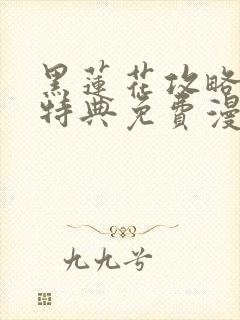 黑蓮花攻略
特典免費漫
九九兮